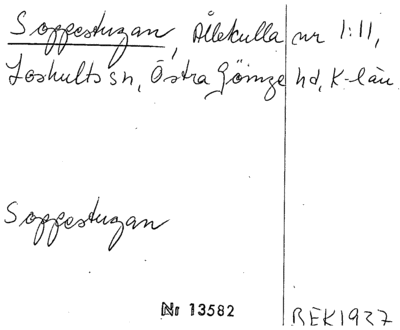 Soppestugan, Ålekulla nr 1:11,
Loshults sn, Östra Göinge hd, K-län.
Soppestugan
Nr 13582
BEK1937